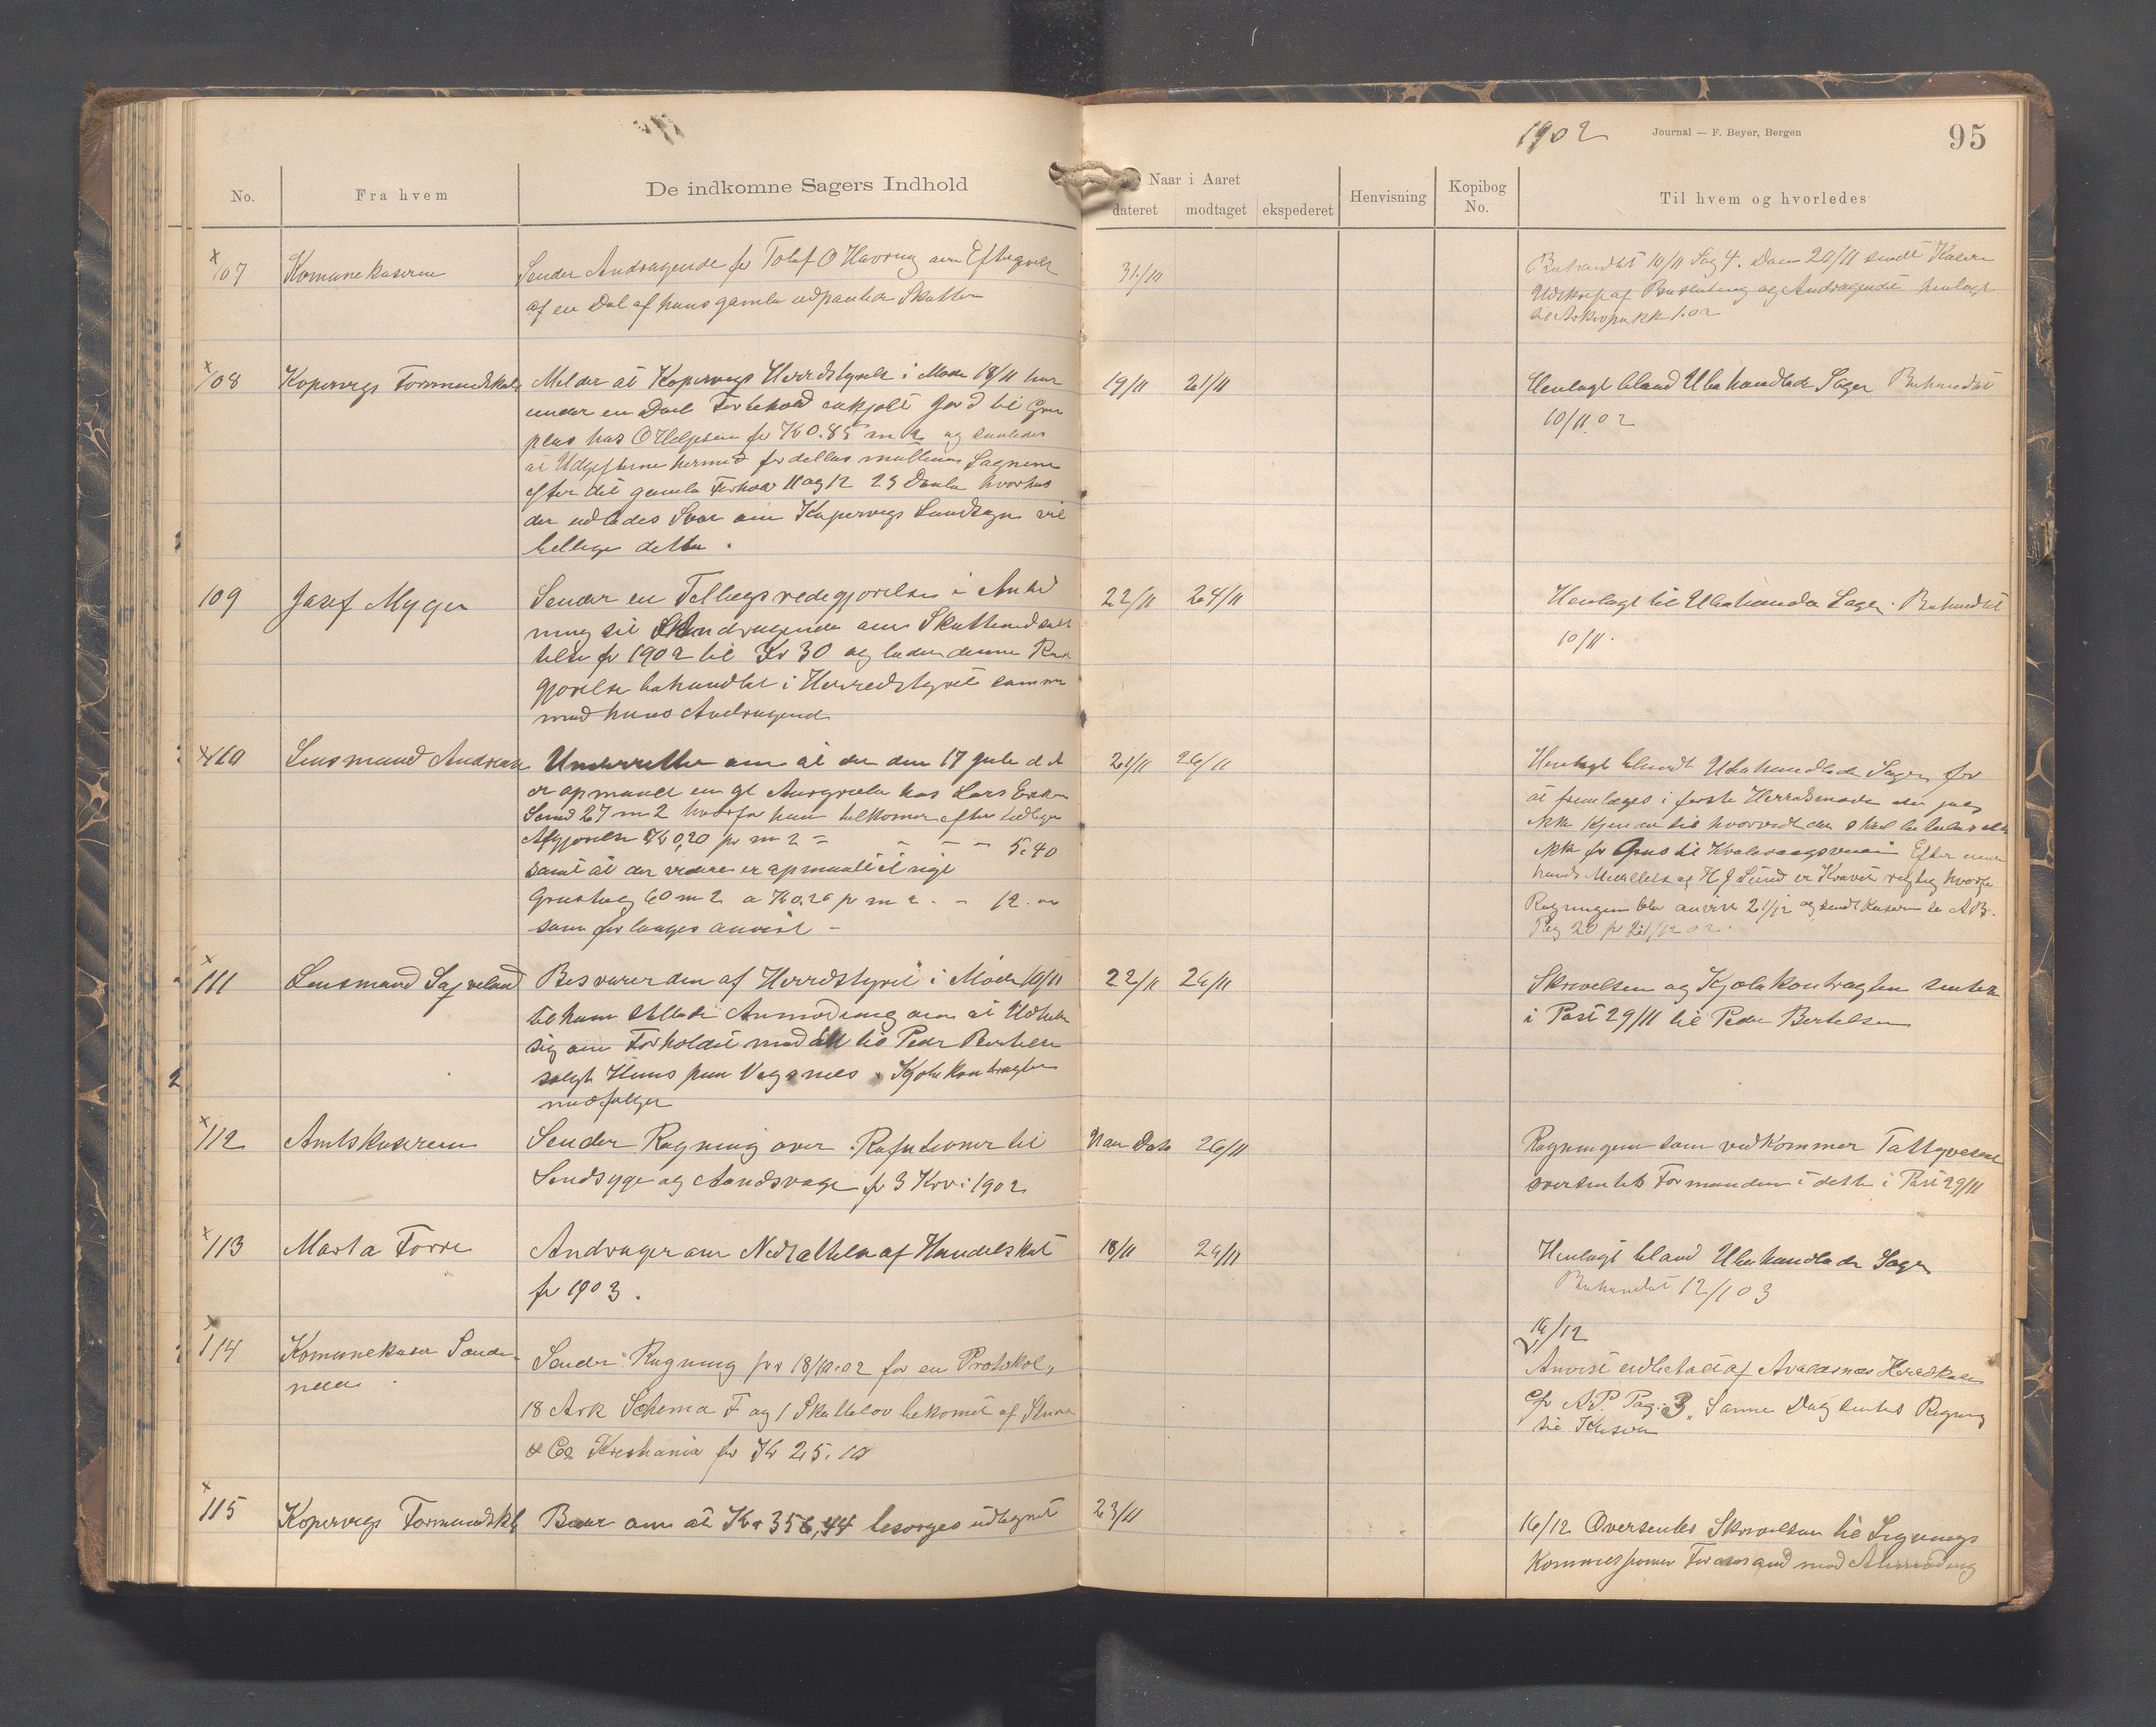 1902 Journal — F. Beyer, Bergen 95
No. Fra hvem De indkomne Sagers Indhold Naar i Aaret dateret modtaget ekspederet Henvisning Kopibog No. Til hvem og hvorledes
107 Komunekaseren Sender Andragende fra Tolef O Havring om Eftergivelse 31/10
af en Del af hans gamle udpantede Skatter
Behandlet 10/11 Sag 4. Den 20/11 sendt Kaseren
Udskrift af Beslutning og Andragendet henlagt
til Arkivpakk 1.02
108 Kopervigs Formandskab Melder at Kopervigs Herredstyrelse i Møde 18/11 har 19/11 21/11
under en Del Forbehold inkjøbt Jord til Grav
plas hos O Helgesen for Kr 0.85 m 2 og saaledes
at Udgifterne hermed fordelles mellem Sognene
efter det gamle Forhold 11 og 12 23 Dele hvorhos
der udbedes Svar om Kopervigs Landsogn vil
billige dette.
Henlagt bland Ubehandlede Sager Behandlet
10/11 02
109 Josef Myger Sender en Tillægsredegjørelse i Anled 22/11 24/11
ning sit Andragende om Skattenedsæt
telse for 1902 til Kr 30 og beder denne Rede
gjørelse behandlet i Herredstyret sammen
med hans Andragende
Henlagt til Ubehandle Sager. Behandlet
10/11.
110 Lensmand Andreasen Underretter om at der den 17 Juli d. å. 21/11 26/11
er opmaalt en gl Aurgrøvle hos Lars Eriksen
Sund 27 m 2 hvorfor han tilkommer efter tidligere
Afgjørelse Kr 0,20 pr m 2 = — — — 5.40
samt at der videre er opmaalt et nyt
Grustag 60 m 2 a Kr 0.20 pr m 2 - - 12.00
som forlanges anvist -
Henlagt blandt Ubehandlede Sager for
at fremlægges i første Herredsmøde da jeg
ikke kjender til hvorvidt der skal betales eller
ikke for Grus til Kvalavaagsveien Efter
hands Meddelelse af H J Sund er Kravet rigtig hvorfor
Regningen blev anvist 21/12 og sendt Kaseren se A.B.
Pag 20 pr 21/12 02.
111 Lensmand Sagveland Besvarer den af Herredstyret i Møde 10/11 22/11 26/11
til ham stillede Anmodning om at Udtale
sig om Forholdet med det til Peder Bertelsen
solgte Huus paa Vegsnes. Kjøbekontragten
medfølger
Skrivelsen og Kjøbekontragten sendtes
i Post 29/11 til Peder Bertelsen
112 Amtskaseren Sender Regning over Refutioner til Uden Dato 26/11
Sindsyge og Aandsvage for 3 Kv: 1902
Regningen som vedkommer Fattigvesenet
oversendtes Formanden i dette i Post 29/11
113 Marta Førre Andrager om Nedsættelse af Handelskat 18/11 29/11
for 1903.
Henlagt bland Ubehandlede Sager
Behandlet 12/1 03
114 Komunekaser Sande- Sender Regning pr 18/10.02 for en Protokol,
næs 18 Ark Schema F og 1 Skattelov bekomet af
& Co Kristiania for Kr 25.10
16/12
Anvist udbetalt af Avaldsnes Herredkasse
cfr A.P. Pag. 3. Samme Dag sendtes Regning
til Kaseren
115 Kopervigs Formandskb Beder om at Kr 356,44 besørges udlignet 23/11
16/12 Oversendtes Skrivelsen til Lignings
Kommissionens Formand med Anmodning